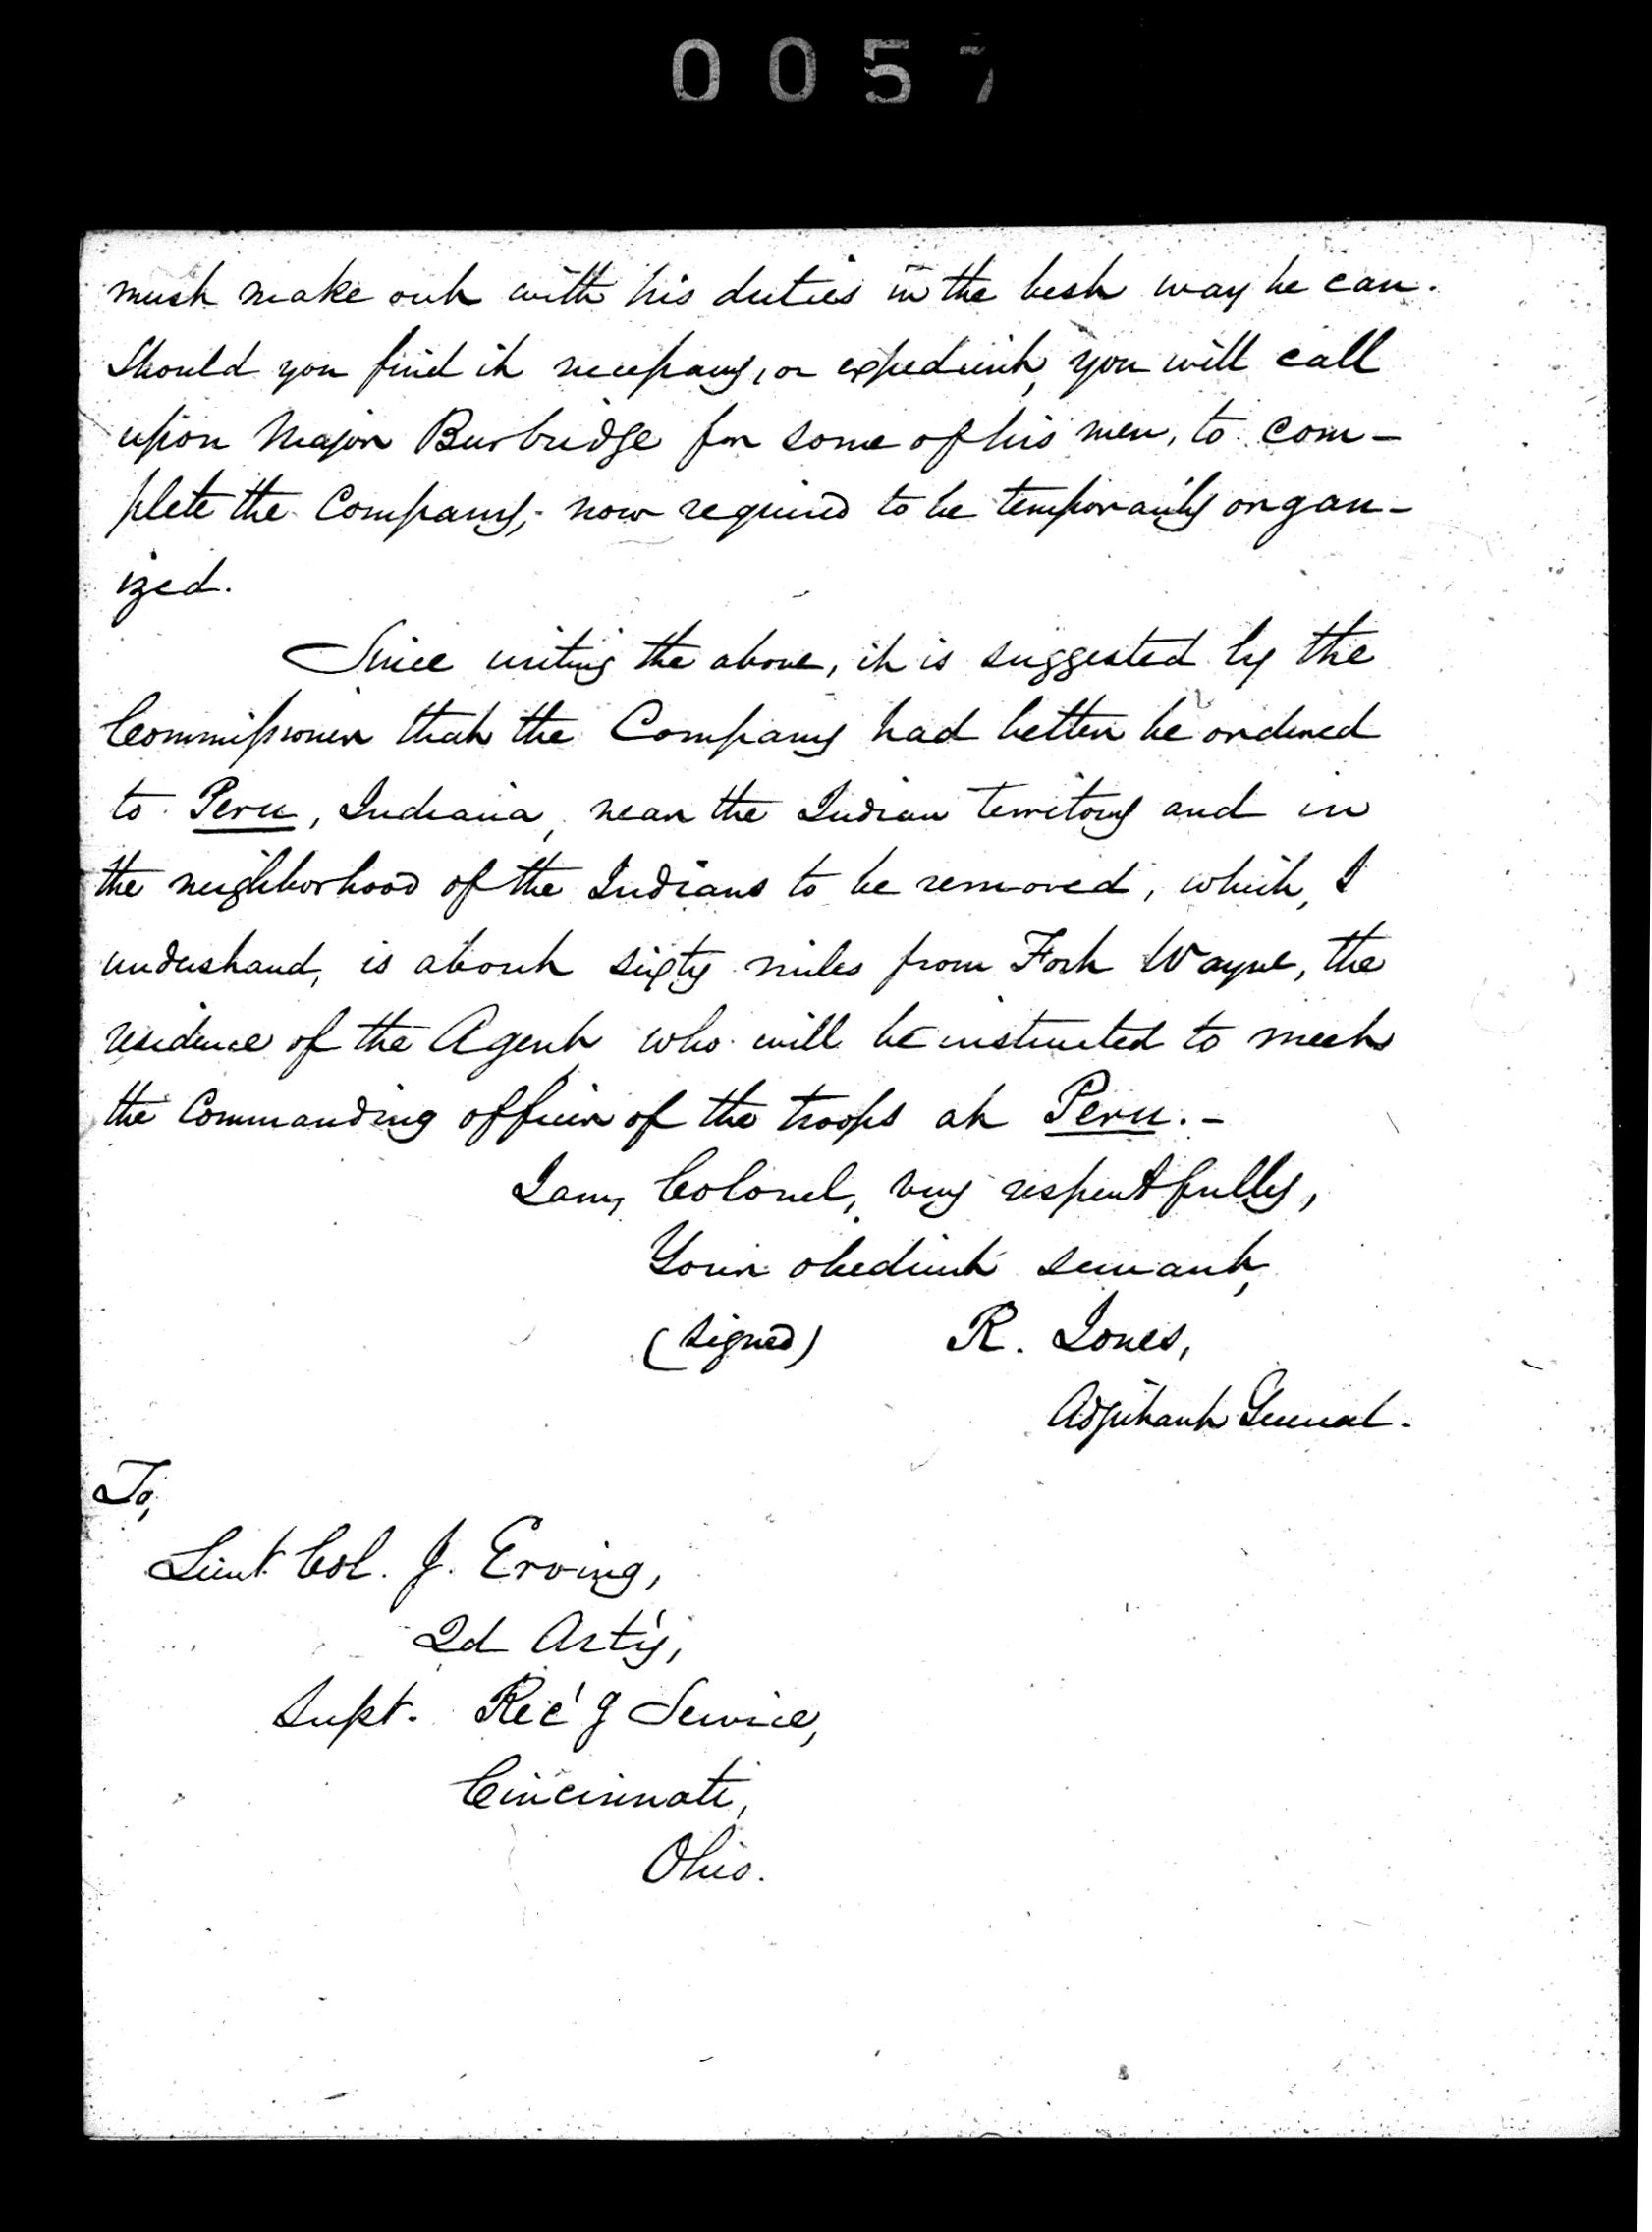 0057
must make out with his duties in the best way he can.
Should you find it necessary, or expedient, you will call
upon Major Burbridge for some of his men, to com-
plete the Company, now required to be temporarily organ-
ized.
Since writing the above, it is suggested by the
Commissioner that the Company had better be ordered
to Peru, Indiana, near the Indian territory and in
the neighborhood of the Indians to be removed, which, I
understand, is about sixty miles from Fort Wayne, the
residence of the Agent who will be instructed to meet
the Commanding officer of the troops at Peru.-
I am, Colonel, very respectfully,
Your obedient servant,
(signed) R. Jones,
Adjutant General.
To,
Lieut Col. J. Erving,
2d Art'y,
Supt. Rec'g Service,
Cincinnati,
Ohio.